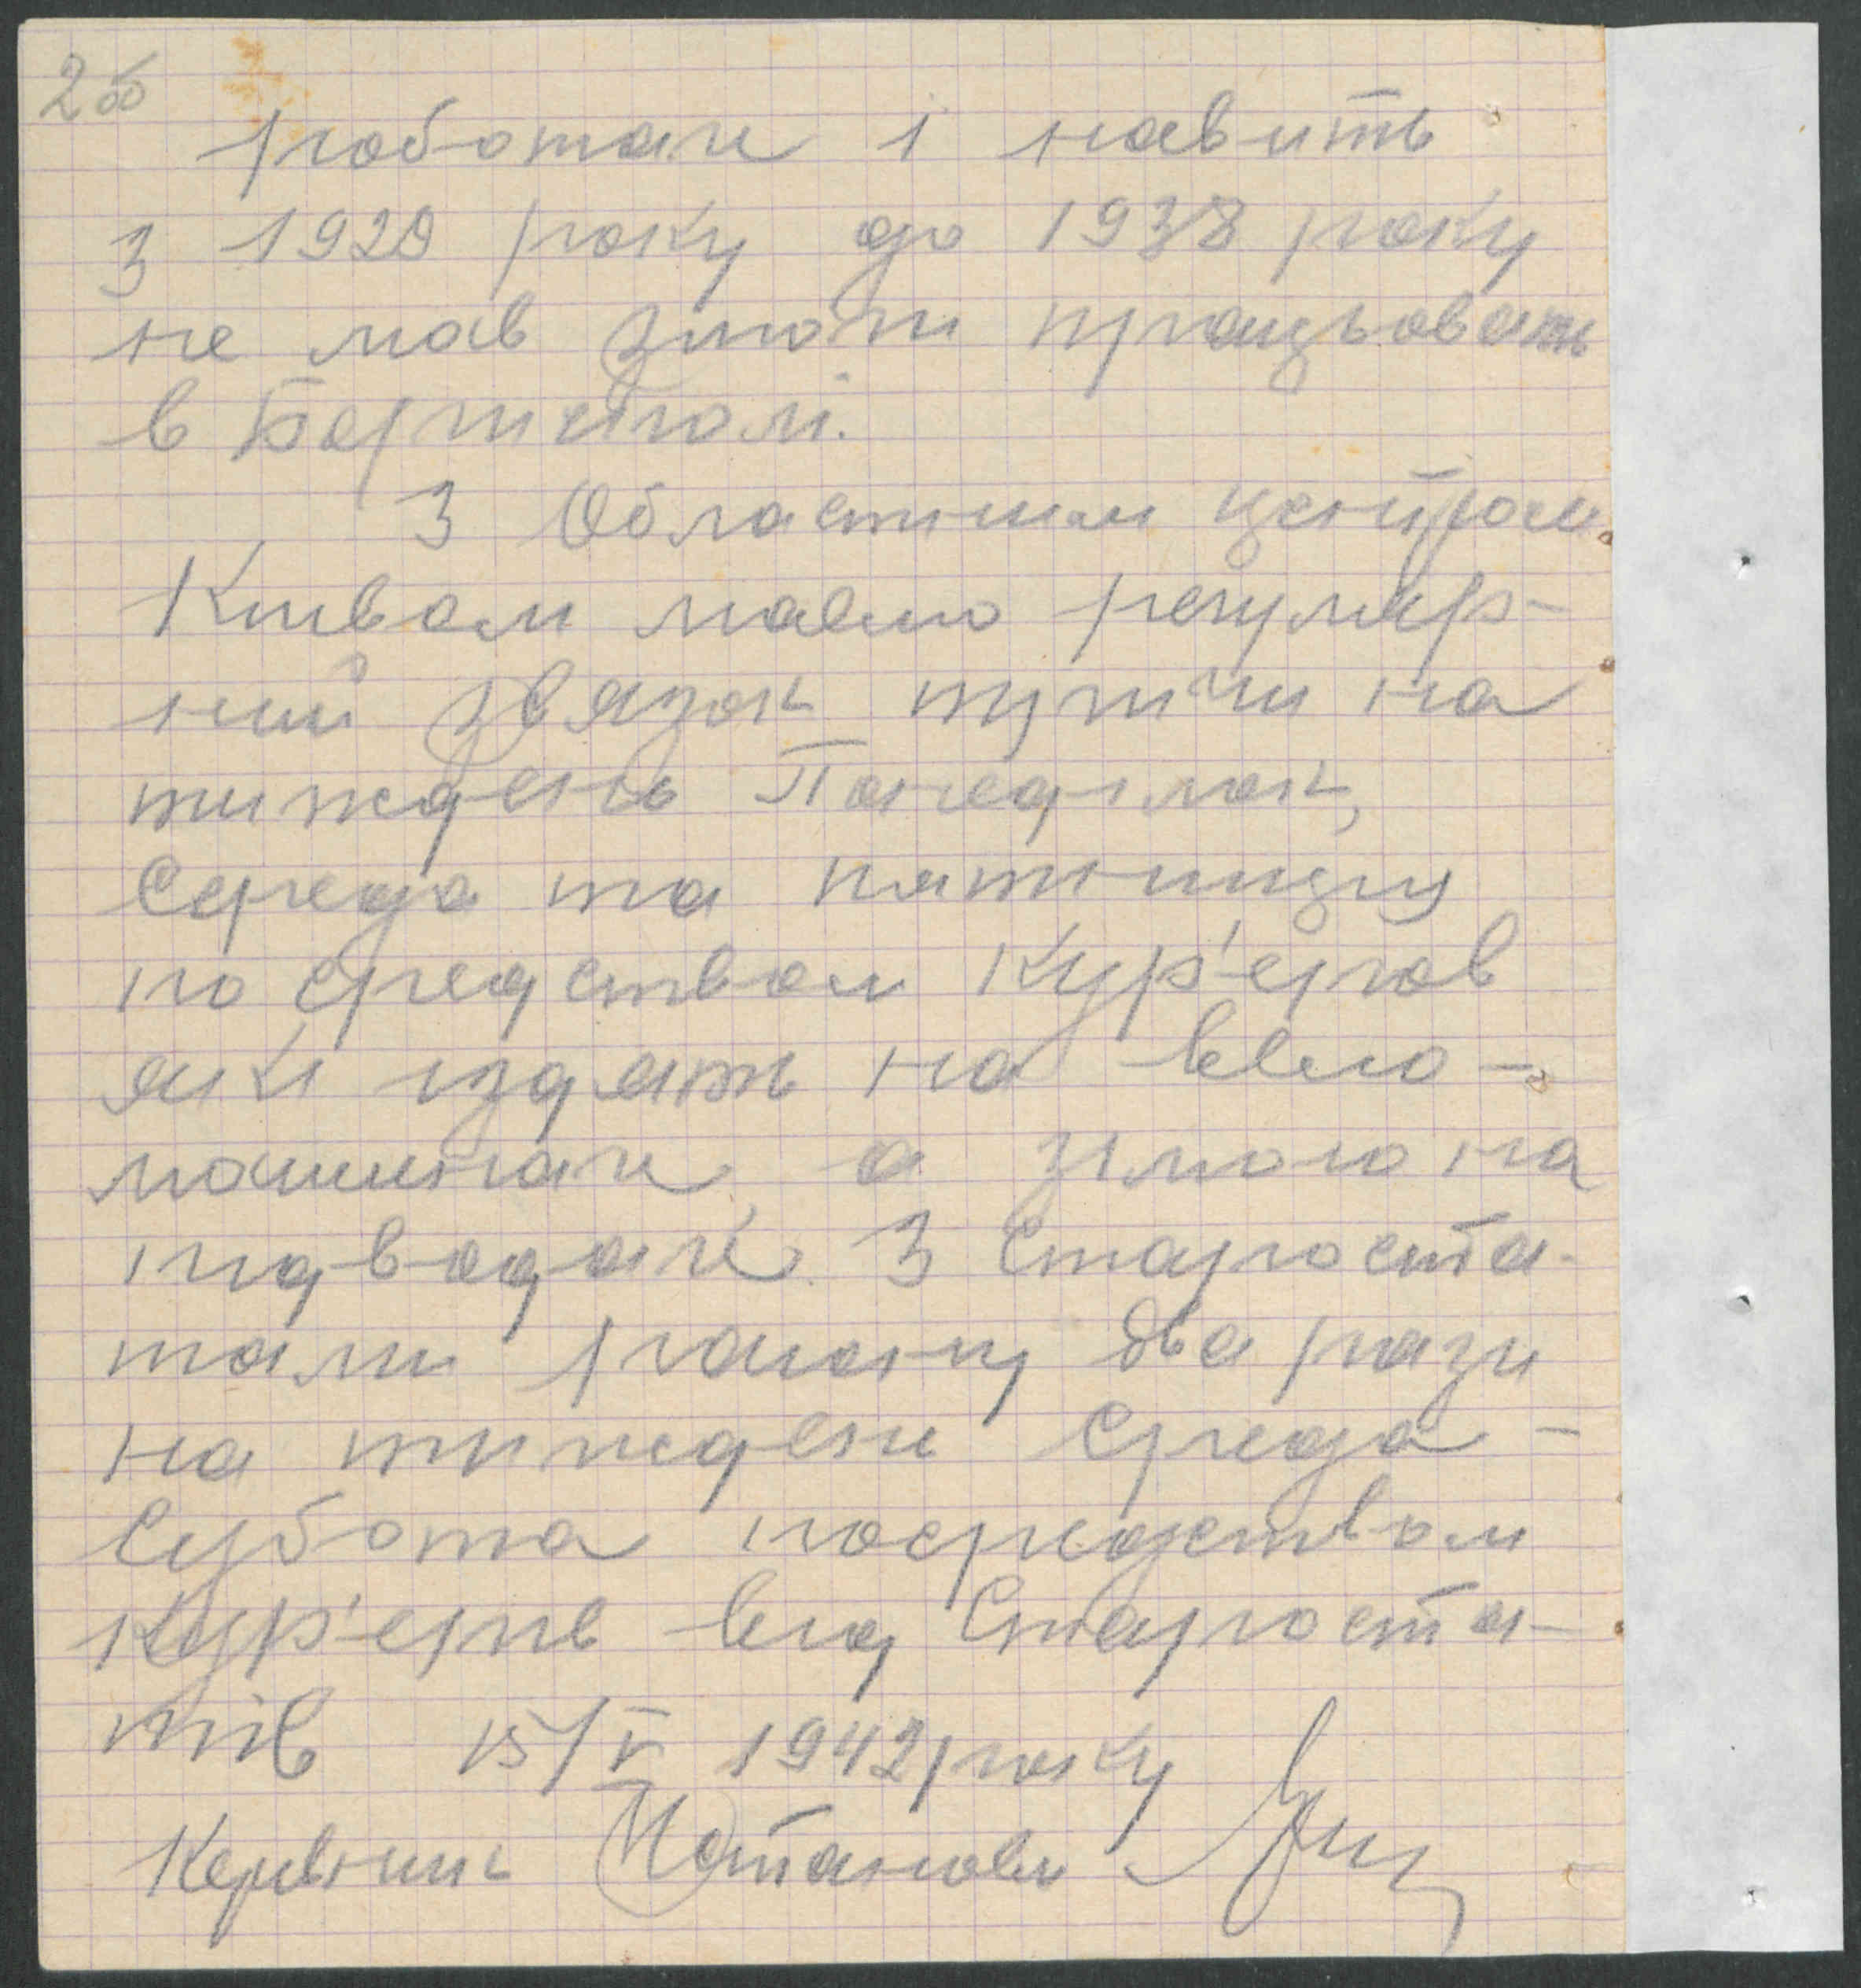 2об
роботах і навить
з 1920 року до 1938 року
не мав змоги працьовать
в Бориспол і.
З Областним центром
Київом маємо регуляр-
ний звязок тричи на
тиждень Понеділок,
Середа та пятницу
по средством Кур'еров
які іздять на вело-
машинах, а зімою на
підводах. З Староста-
тами раиону два рази
на тиждень Среда -
Субота посредством
Кур'ерів від Староста-
тів 15/V 1942 року
Керівник